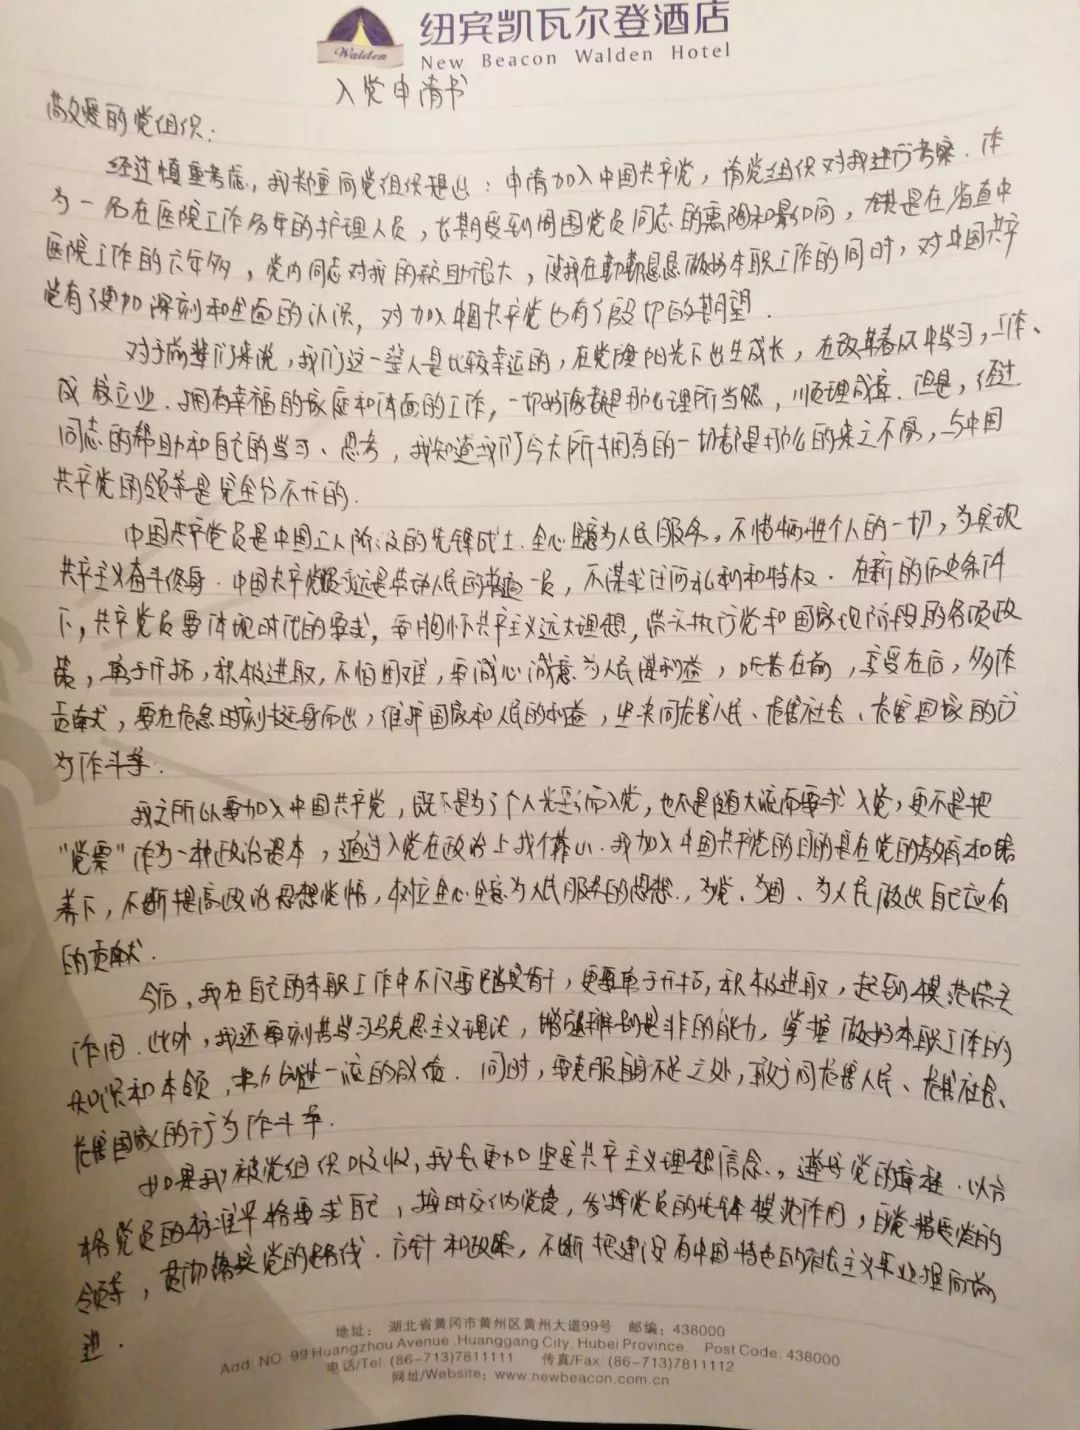 纽宾凯瓦尔登酒店
Walden
New Beacon Walden Hotel
入党申请书
敬爱的党组织：
经过慎重考虑，我郑重向党组织提出：申请加入中国共产党，请党组织对我进行考察．作
为一名在医院工作多年的护理人员，长期受到周围党员同志的熏陶和影响，尤其是在省直中
医院工作的六年多，党内同志对我的帮助很大，使我在勤勤恳恳做好本职工作的同时，对中国共产
党有了更加深刻和全面的认识，对加入中国共产党也有了殷切的期望．
对于前辈们来说，我们这一辈人是比较幸运的，在党旗阳光下出生成长，在改革春风中学习，工作、
成家立业．拥有幸福的家庭和体面的工作，一切好像都是那么理所当然，顺理成章．但是，经过
同志的帮助和自己的学习、思考，我知道我们今天所拥有的一切都是那么的来之不易，与中国
共产党的领导是完全分不开的．
中国共产党员是中国工人阶级的先锋战士．全心全意为人民服务，不惜牺牲个人的一切，为实现
共产主义奋斗终身．中国共产党员永远是劳动人民的普通一员，不谋求任何私利和特权．在新的历史条件
下，共产党员要体现时代的要求，要胸怀共产主义远大理想，带头执行党和国家现阶段的各项政
策，勇于开拓，积极进取，不怕困难，要诚心诚意为人民谋利益，吃苦在前，享受在后，多作
贡献，要在危急时刻挺身而出，维护国家和人民的利益，坚决同危害人民、危害社会、危害国家的行
为作斗争．
我之所以要加入中国共产党，既不是为了个人光彩而入党，也不是随大流而要求入党，更不是把
“党票”作为一种政治资本，通过入党在政治上找个靠山．我加入中国共产党的目的是在党的教育和培
养下，不断提高政治思想觉悟，树立全心全意为人民服务的思想，为党、为国、为人民做出自己应有
的贡献．
今后，我在自己的本职工作中不仅要踏实肯干，更要勇于开拓，积极进取，起到模范带头
作用．此外，我还要刻苦学习马克思主义理论，增强辨别是非的能力，掌握做好本职工作的
知识和本领，努力创造一流的成绩．同时，要克服自身不足之处，敢于同危害人民、危害社会、
危害国家的行为作斗争．
如果我被党组织吸收，我会更加坚定共产主义理想信念，遵守党的章程．以合
格党员的标准严格要求自己，按时交纳党费，发挥党员的先锋模范作用，自觉接受党的
领导，贯彻落实党的路线．方针和政策，不断把建设有中国特色的社会主义事业推向前
进．
地址： 湖北省黄冈市黄州区黄州大道99号 邮编：438000
Add: NO. 99 Huangzhou Avenue ,Huanggang City, Hubei Province Post Code: 438000
电话/Tel: (86-713)7811111 传真/Fax: (86-713)7811112
网址/Website: www.newbeacon.com.cn